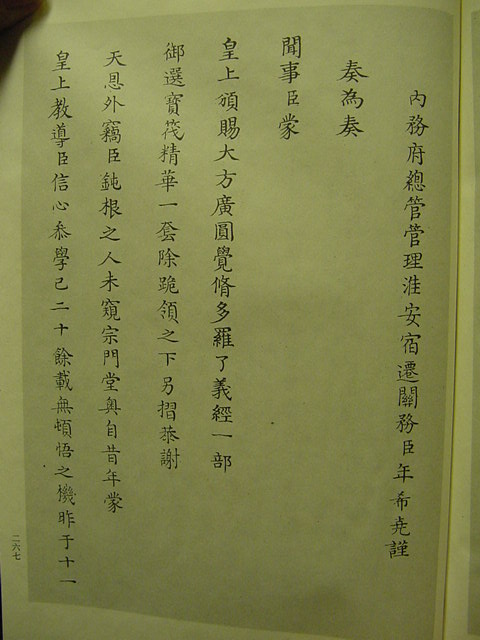 內務府總管管理淮安宿遷關務臣年希堯謹
奏為奏
聞事臣蒙
皇上頒賜大方廣圓覺脩多羅了義經一部
御選寶筏精華一套除跪領之下另摺恭謝
天恩外竊臣鈍根之人未窺宗門堂奥自昔年蒙
皇上教導臣信心叅學已二十餘載無頓悟之機昨于十一
二六七